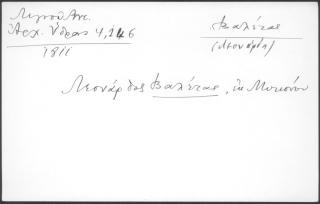 Λιγνοῦ Ἀντ.
Ἀρχ. Ὕδρας 4, 246
1811
Βαλέτας
(Λεονάρδος)
Λεονάρδος Βαλέτας, ἐκ Μυκόνου